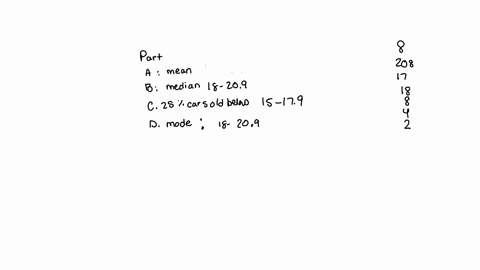 Part
A : mean
B: median 18-20.9
C. 25 % car sold below 15-17.9
D. mode : 18- 20.9
8
208
17
18
8
4
2